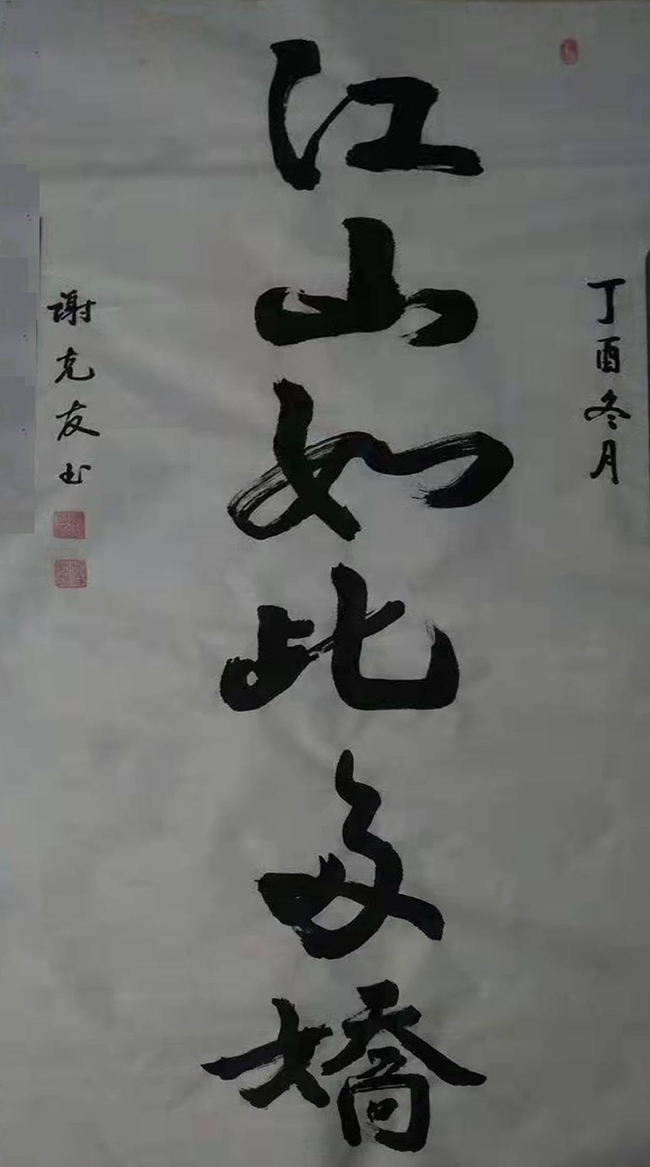 丁酉冬月
江山如此多嬌
谢克友书